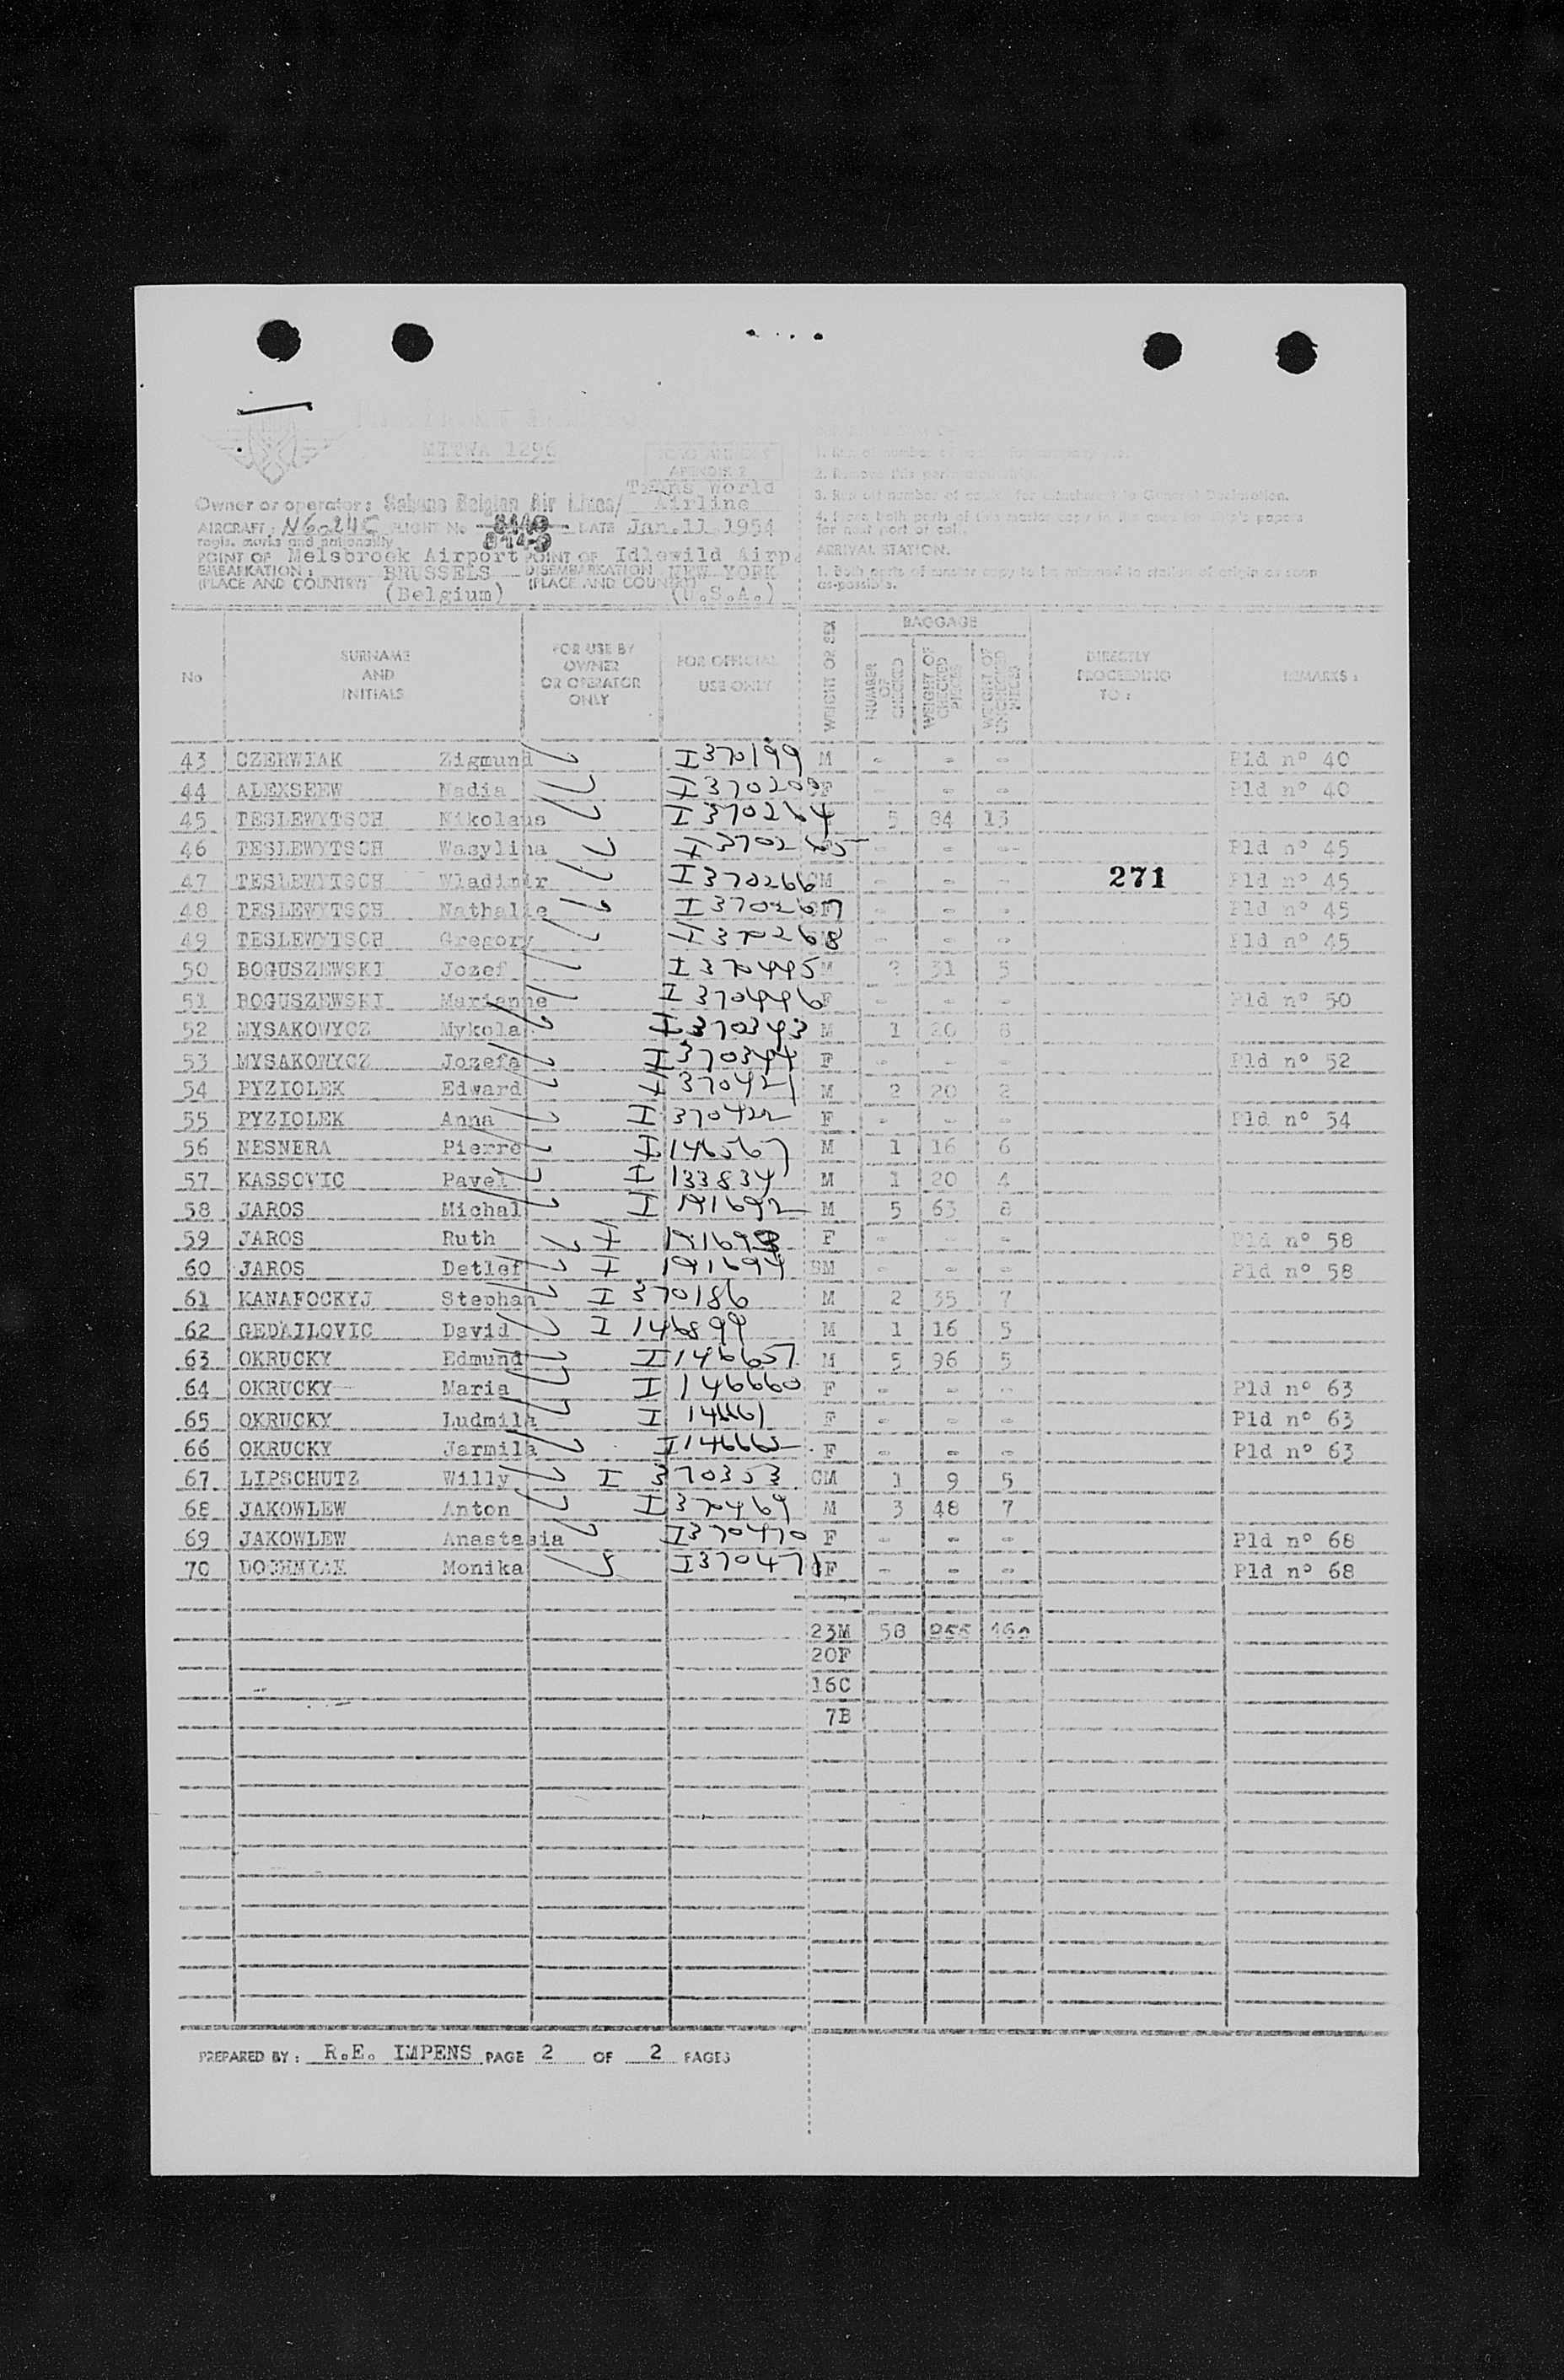 MITWA 1296
Owner or operator: Sabena Belgian Air Lines/ Trans World Airline
AIRCRAFT: FLIGHT No DATE Jan.11.1954
regis. marks and nationality
POINT OF Melsbroek Airport POINT OF Idlewild Airp.
EMBARKATION: BRUSSELS DISEMBARKATION NEW YORK
(PLACE AND COUNTRY) (Belgium) (PLACE AND COUNTRY) (U.S.A.)
3. Run off number of copies for attachment to General Declaration.
ARRIVAL STATION.
1. Both parts of master copy to be returned to station of origin as soon
as possible.
No SURNAME AND INITIALS FOR USE BY OWNER OR OPERATOR ONLY FOR OFFICIAL USE ONLY WEIGHT OR SEX BAGGAGE NUMBER OF CHECKED WEIGHT OF CHECKED PIECES WEIGHT OF UNCHECKED PIECES DIRECTLY PROCEEDING TO: REMARKS:
43 CZERWIAK Zigmund I 370199 M - - - Pld n° 40
44 ALEXSEEW Nadia F - - - Pld n° 40
45 TESLEWYTSCH Nikolaus I 370264 5 84 13
46 TESLEWYTSCH Wasylina I 370265 - - - Pld n° 45
47 TESLEWYTSCH Wladimir I 370266 CM - - - 271 Pld n° 45
48 TESLEWYTSCH Nathalie I 370267 - - - Pld n° 45
49 TESLEWYTSCH Gregory I 370268 - - - Pld n° 45
50 BOGUSZEWSKI Jozef I 370445 M 31 5
51 BOGUSZEWSKI Marianne I 370446 F - - - Pld n° 50
52 MYSAKOWYCZ Mykola I 370343 M 1 20 8
53 MYSAKOWYCZ Jozefa I 370344 F - - - Pld n° 52
54 PYZIOLEK Edward I 370421 M 2 20 2
55 PYZIOLEK Anna I 370422 F - - - Pld n° 54
56 NESNERA Pierre I 146567 M 1 16 6
57 KASSOVIC Pavel I 133834 M 1 20 4
58 JAROS Michal I 191692 M 5 63 8
59 JAROS Ruth I 191693 F - - Pld n° 58
60 JAROS Detlef I 191694 BM - - - Pld n° 58
61 KANAFOCKYJ Stephan I 370186 M 2 35 7
62 GEDAILOVIC David I 146899 M 1 16 5
63 OKRUCKY Edmund I 146657 M 5 96 5
64 OKRUCKY Maria I 146660 F - - - Pld n° 63
65 OKRUCKY Ludmila I 14661 F - - - Pld n° 63
66 OKRUCKY Jarmila I 146662 F - - - Pld n° 63
67 LIPSCHUTZ Willy I 370353 CM 1 9 5
68 JAKOWLEW Anton I 370469 M 3 48 7
69 JAKOWLEW Anastasia I 370470 F - - - Pld n° 68
70 DOCHNIAK Monika I 370471 CF - - - Pld n° 68
23M 58
20F
16C
7B
PREPARED BY: R.E. IMPENS PAGE 2 OF 2 PAGES